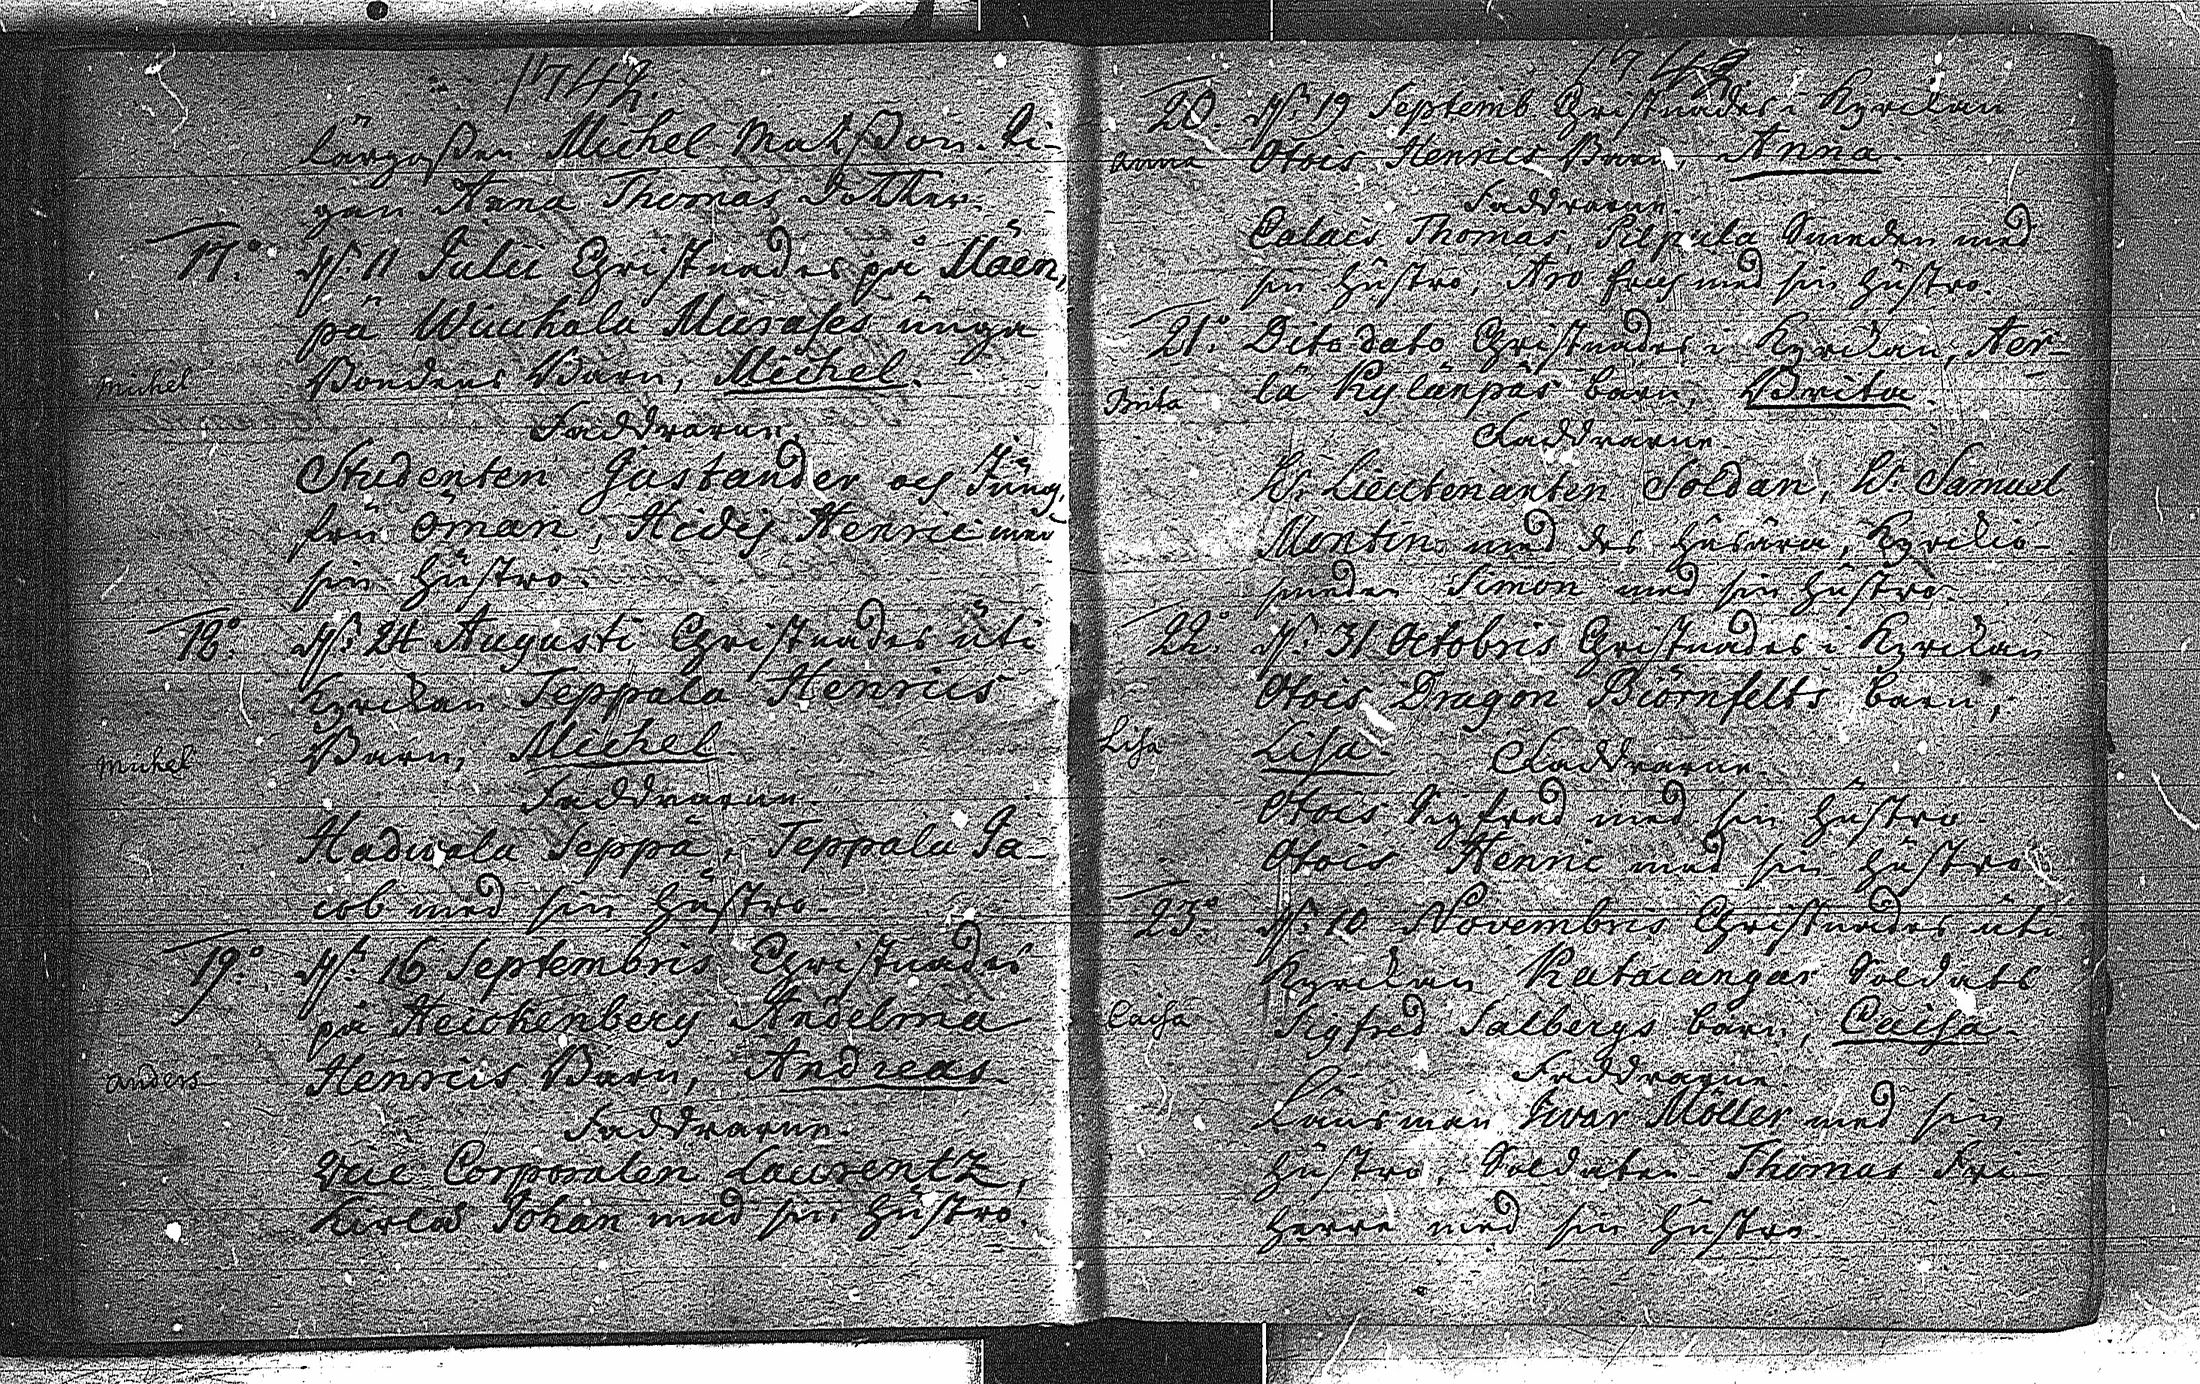 1742.
lärgossen Michel Matsson. Pi-
gan Anna Thomas dotter.
17.° D. 11 Julii Christnades på Mäen,
på Wiuhala Murases unga
Michel Bondens Barn, Michel.
Faddrarne.
Studenten Gastander och Jung-
fru Öman, Heidis Henric med
sin hustru.
18.° D. 24 Augusti Christnades uti
Kyrckan Teppala Henrics
Michel Barn, Michel.
Faddrarne.
Hadwala Seppä, Teppala Ja-
cob med sin hustro.
19.° D. 16 Septembris Christnades
på Andelma
anders Henrics Barn, Andreas.
Faddrarne.
Vice Corporalen Laurentz,
Johan med sin hustro.
1742
20. D. 19 Septemb. Christnades i Kyrckan
Anna Otois Henrics Barn, Anna.
Faddrarne.
Calais Thomas, Pilpula Smeden med
sin hustro, Aro med sin hustro.
21.° Dito dato Christnades i Kyrckan, Aer-
Brita lä Kylänpäs barn, Brita.
Faddrarne.
H. Lieutenanten Soldan, H. Samuel
Montin med des husära, Kyrckio-
smeden Simon med sin hustro.
22.° D. 31 Octobris Christnades i Kyrckan
Otois Dragon Biörnfelts barn,
Lisa Lisa Faddrarne.
Otois Sigfred med sin hustro
Otois Henric med sin hustro
23.° D. 10 Novembris Christnades uti
Kyrckan Ratacangas Soldats
Caisa Sigfred Salbergs barn, Caisa.
Faddrarne
Länsman Iwar Möller med sin
hustro, Soldaten Thomas Fri-
herre med sin hustro